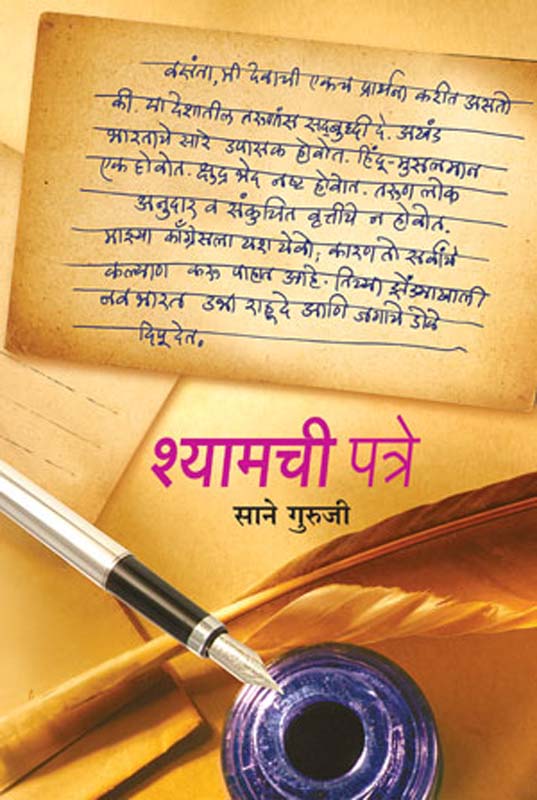 वसंता, मी देवाची एकच प्रार्थना करीत असतो
की. या देशातील तरुणांस सद्‌बुध्दी दे. अखंड
भारताचे सारे उपासक होवोत. हिंदू-मुसलमान
एक होवोत. क्षुद्र भेद नष्ट होवोत. तरुण लोक
अनुदार व संकुचित वृत्तीचे न होवोत.
माझ्या काँग्रेसला यश येवो; कारण तो सर्वांचे
कल्याण करू पाहात आहे. तिच्या झेंड्याखाली
नवभारत उभा राहू दे आणि जगाचे डोळे
दिपू देत.
श्यामची पत्रे
साने गुरुजी